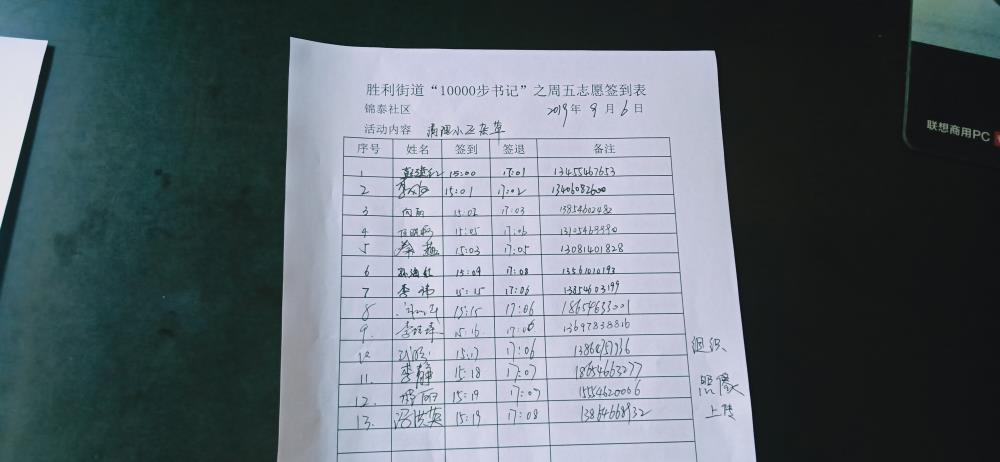 胜利街道“10000步书记”之周五志愿签到表
锦泰社区 2019年 9 月 6 日
活动内容 清理小区杂草
序号 姓名 签到 签退 备注
1 15:00 17:01 13455467653
2 15:01 17:02 13406082600
3 向雨 15:02 17:03 13854602482
4 15:05 17:06
5 秦 15:03 17:05 13081401828
6 孙海红 15:09 17:08 13561010193
7 李祎 15:15 17:06 13854603199
8 15:15 17:06 18654633001
9. 15:16 17:06 13697838816
10 15:17 17:06
11. 李静 15:18 17:07 18654663277
12. 15:19 17:07 15554620006
13. 冯洪英 15:19 17:08 13864668932
组织
照像
上传
联想商用PC